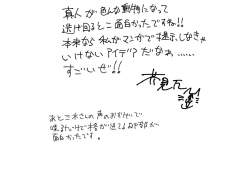 真人が色んな動物になって
逃げ回るとこ面白かったですね!!
本来なら私がマンガで提示しなきゃ
いけないアイデアだなぁ……
すごいぜ!!
芥見下々
あと三木さんの声のおかげで
喋るだけで格が出てる
面白かったです。